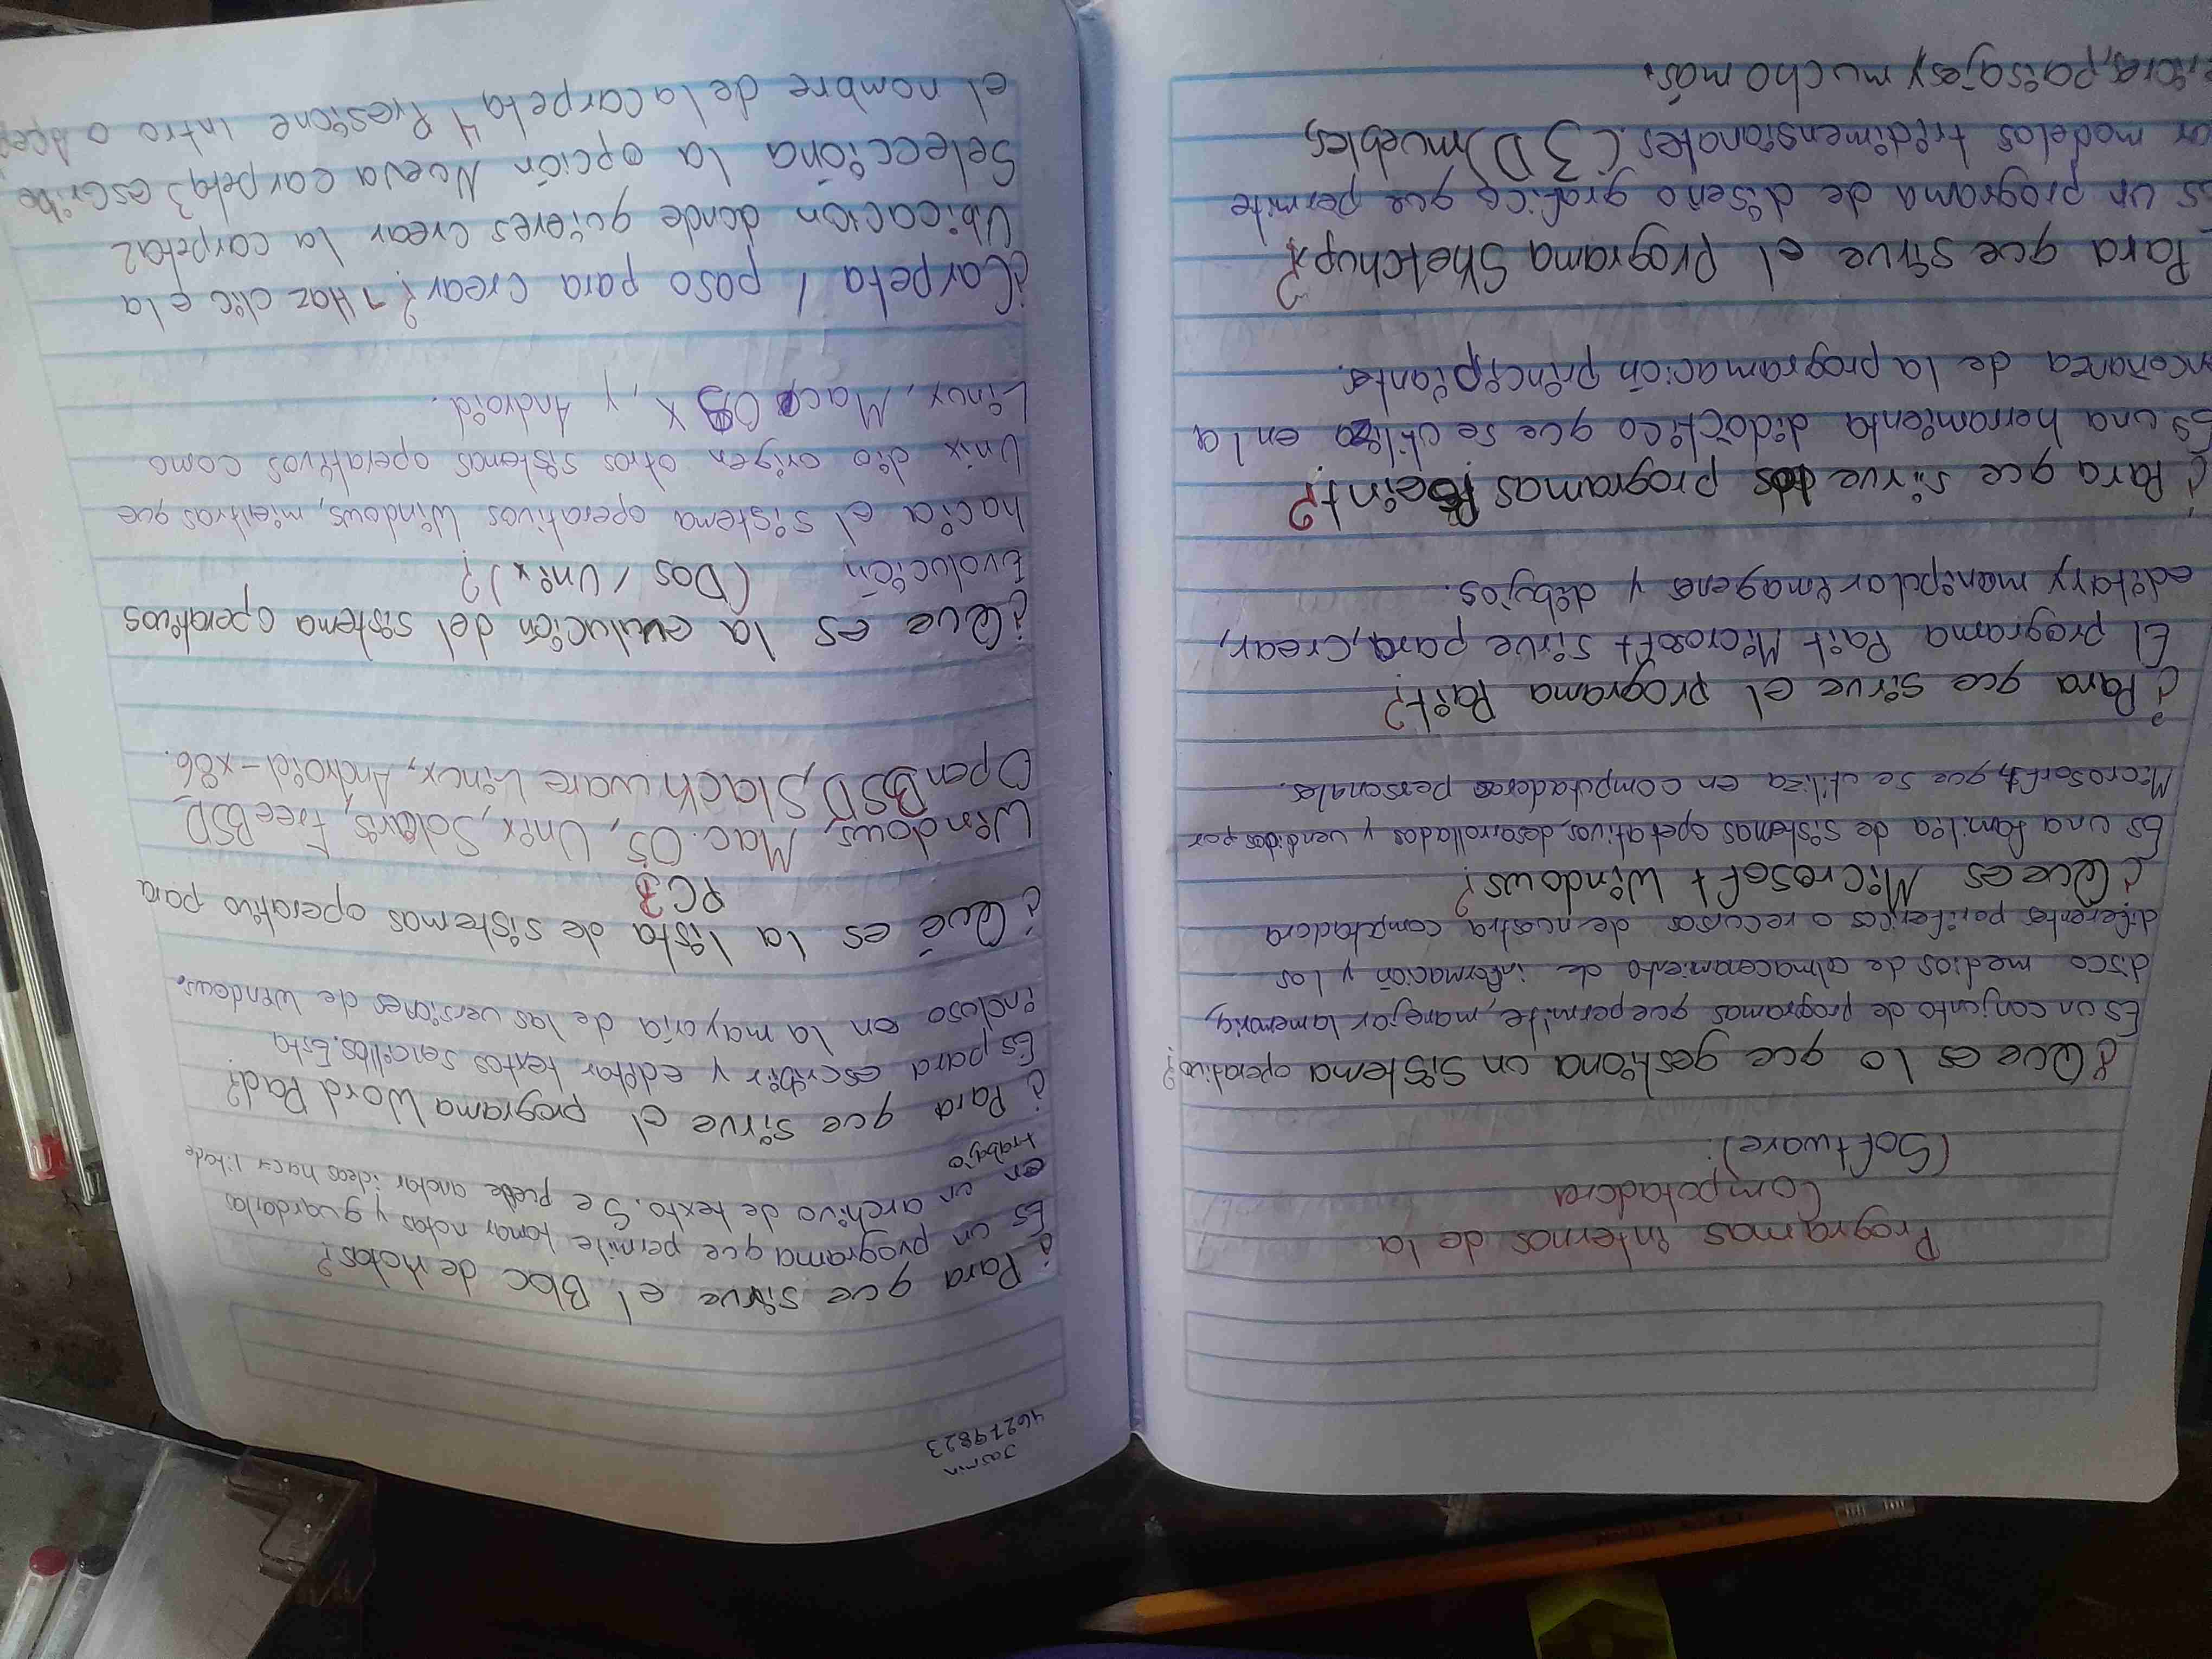 Programas internos de la
Computadora
(Software).
¿Que es lo que gestiona un sistema operativo?
Es un conjunto de programas que permite, manejar la memoria,
disco medios de almacenamiento de información y los
diferentes periféricos o recursos de nuestra computadora
¿Que es Microsoft Windows?
Es una familia de sistemas operativos, desarrollados y vendidos por
Microsorft, que se utiliza en computadoras personales.
¿Para que sirve el programa Pait?
El programa Pait Microsoft sirve para, crear,
editar y manipolar imagenes y dibujos.
¿Para que sirve los programas Pseint?
Es una herramienta didáctico que se utiliza en la
enceñanza de la programación principiante.
Para que sirve el programa Sketchup?
Es un programa de diseño grafico que permite
modelos tridimensionales (3D) muebles,
paisajes y mucho más.
Jasmin
46279823
¿Para que sirve el Bloc de notas?
Es un programa que permite tomar notas y guardarlas
en un archivo de texto. Se puede anotar ideas hacer
trabajo
¿Para que sirve el programa Word Pad?
Es para escribir y editar textos sencillos. Esta
incluso en la mayoría de las versiones de Windows.
¿Qué es la lista de sistemas operativo para
PC?
Windows, Mac. OS, Unix, Solaris, FreeBSD
OpenBSD, Slackware Linux, Android-x86.
¿Que es la evulución del sistema operativos
Evolución (Dos / Unix)?
hacia el sistema operativos Windows, mientras que
Unix dio origen otros sistemas operativos como
Linux, Mac OS X, y Android.
¿Carpeta / paso para crear? 1 Haz clic e la
Ubicación donde quieres crear la carpeta 2
Selecciona la opción Nueva carpeta 3 escribe
el nombre de la carpeta 4 Presione Intro o